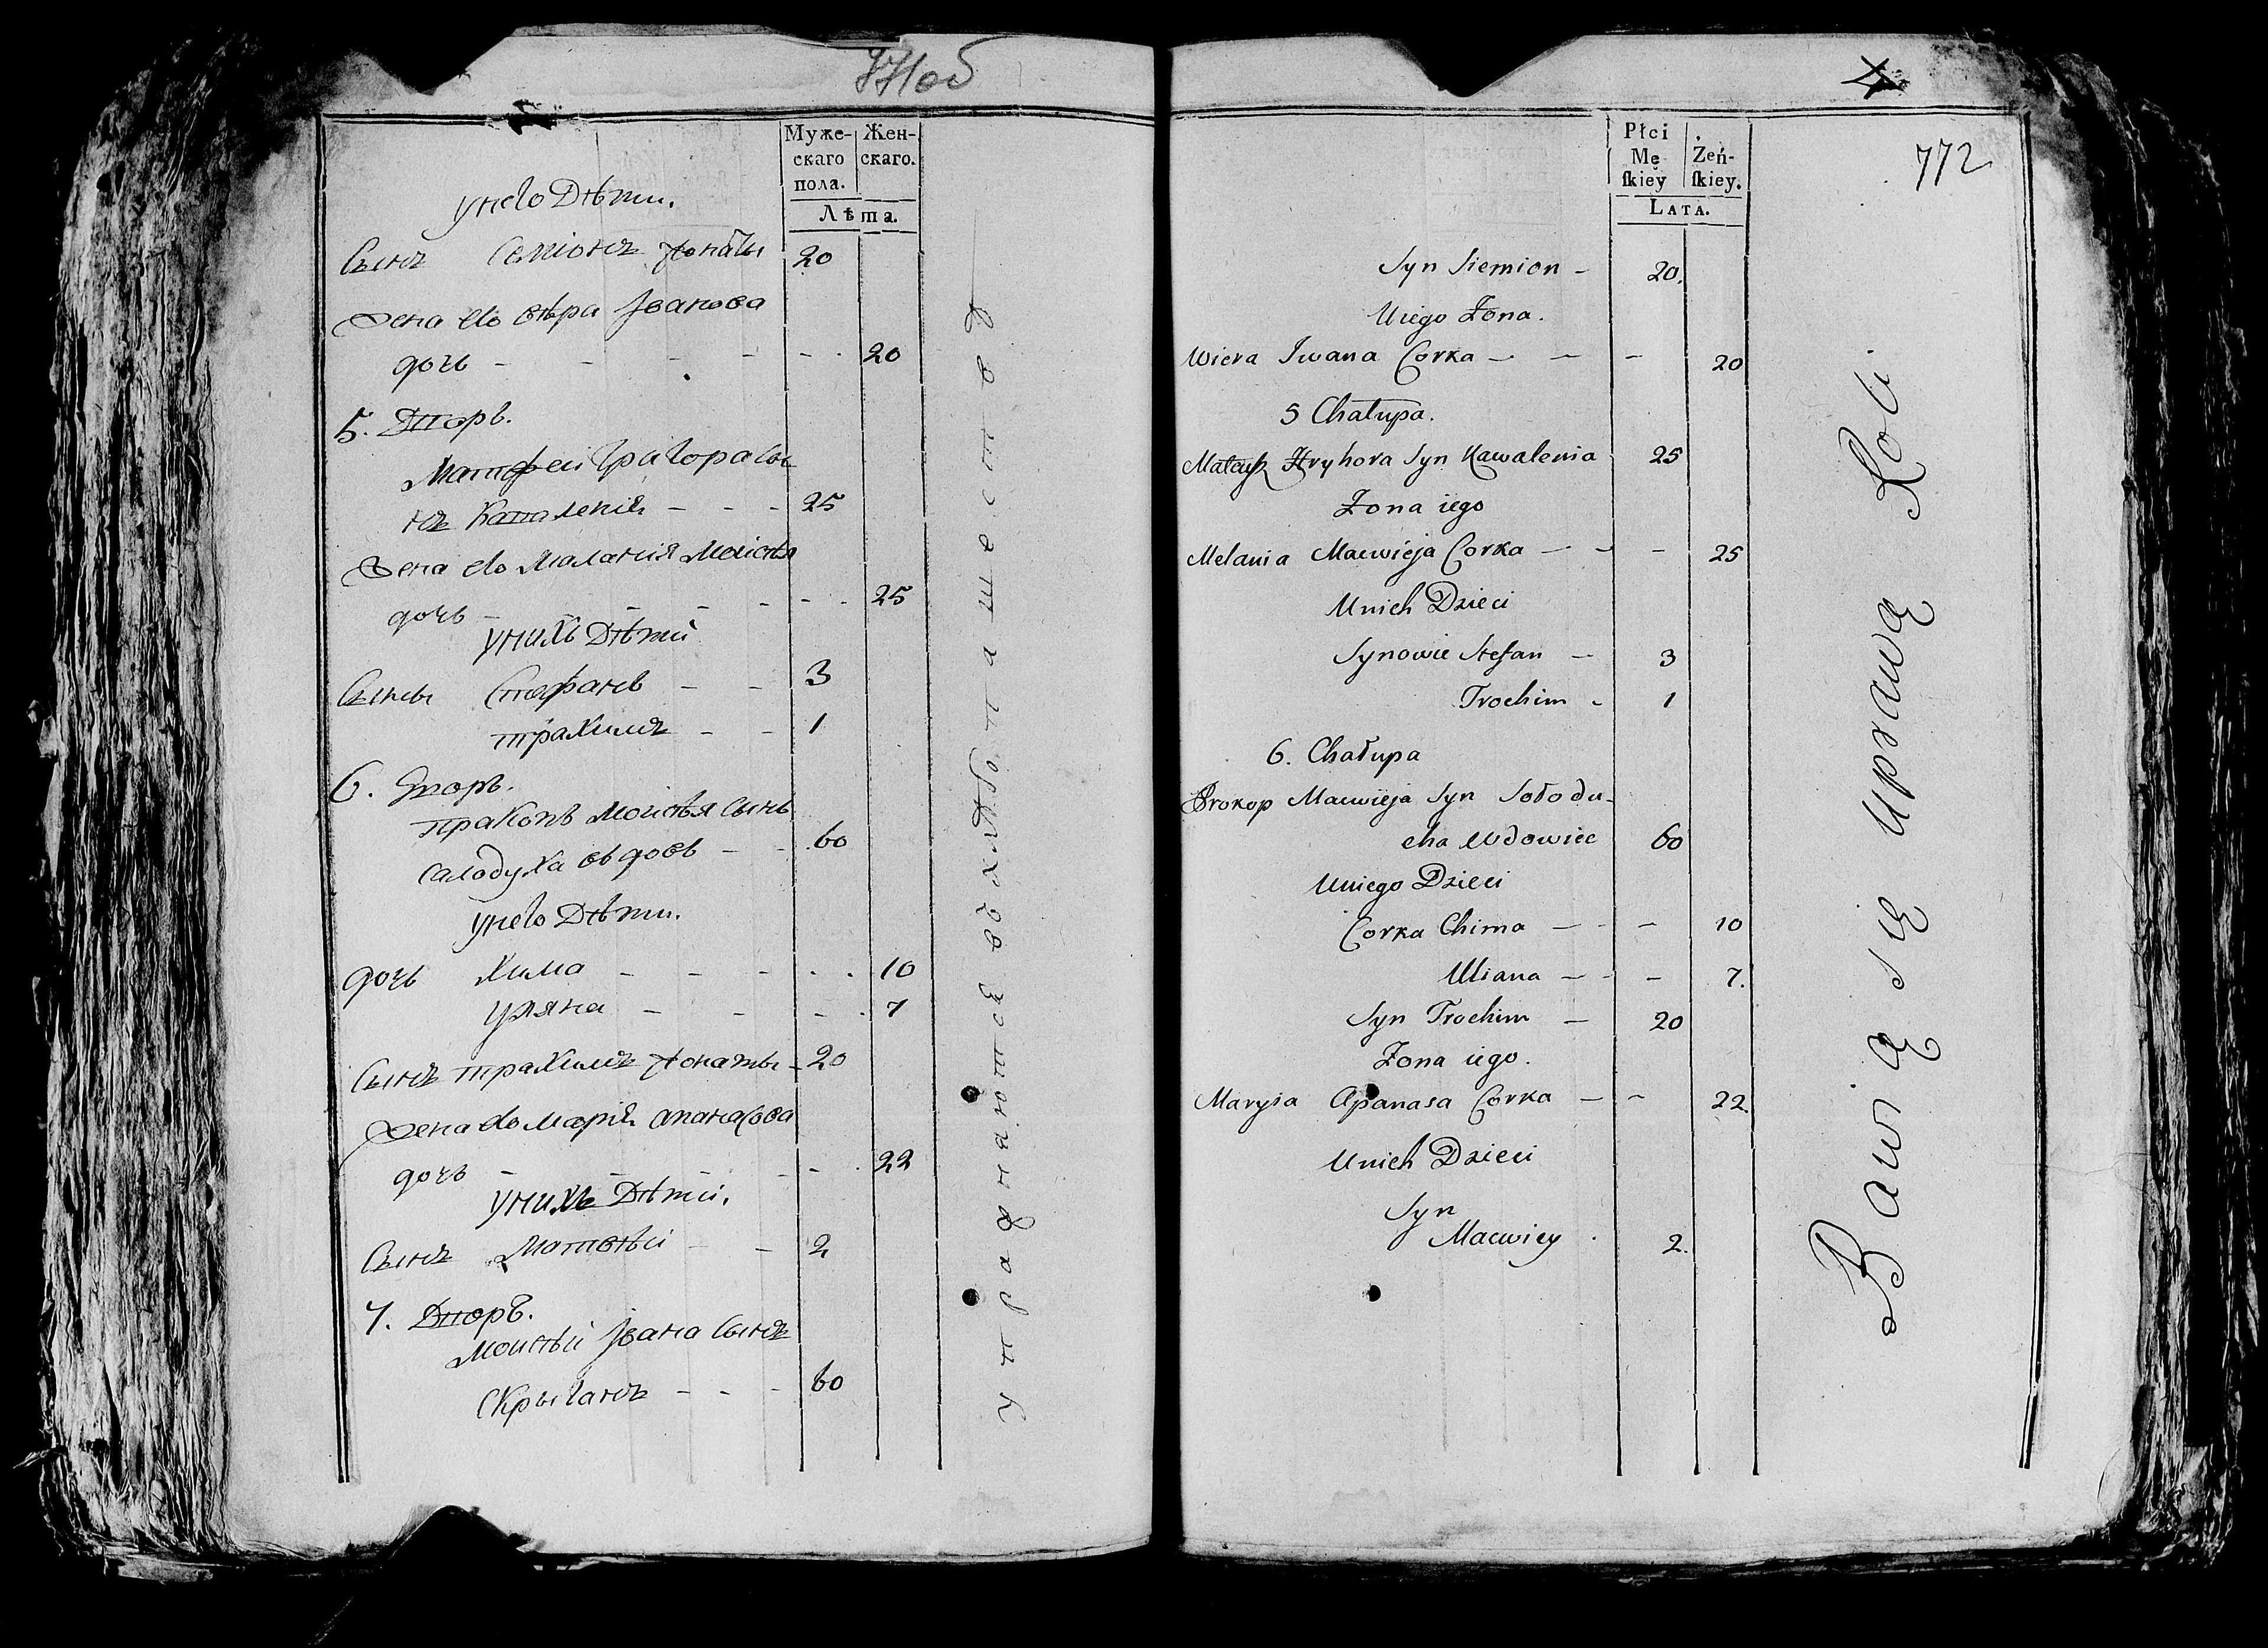 771об
Муже-
скаго
пола.
Жен-
скаго.
Лѣта.
унего Дѣти.
Сынъ Семіонъ Жонаты 20
Жена его Вѣра Іванова
дочь - - - - - 20
5. Дворъ.
Матфей Грыгоравы
нъ Каваленія - - - 25
Жена его Маланія Моисѣя
дочь - - - - - 25
унихъ Дѣти
Сыны Стефанъ - - 3
трахимъ - - 1
6. Дворъ.
пракопъ Моисѣя Сынъ
Салодуха вдовъ - - 60
унего Дѣти.
дочь Хима - - - - - 10
Уляна - - - - 7
Сынъ трахимъ Жонаты - 20
Жена его Марія апанасова
дочь - - - - 22
унихъ Дѣти.
Сынъ Матвѣй - - 2
7. Дворъ.
Моисѣй Івана Сынъ
Скрыганъ - - - 60
упражняютсѣ въ хлѣбопашествѣ
4
772
Płci
Mę
ſkiey
Żeń-
ſkiey.
LATA.
Syn Siemion - 20.
Uiego Żona.
Wiera Iwana Corka - - - 20
5 Chałupa.
Hryhora Syn Kawalenia 25
Żona iego
Melania Macwieja Corka - - - 25
Unich Dzieci
Synowie Stefan - 3
Trochim - 1
6. Chałupa
Prokop Macwieja Syn Sołodu-
cha Wdowiec 60
Uniego Dzieci
Corka Chima - - - 10
Uliana - - - 7.
Syn Trochim - 20
Żona iego.
Marysia Apanasa Corka - - 22.
Unich Dzieci
Syn
Macwiey - 2.
Bawią się Uprawą Roli.